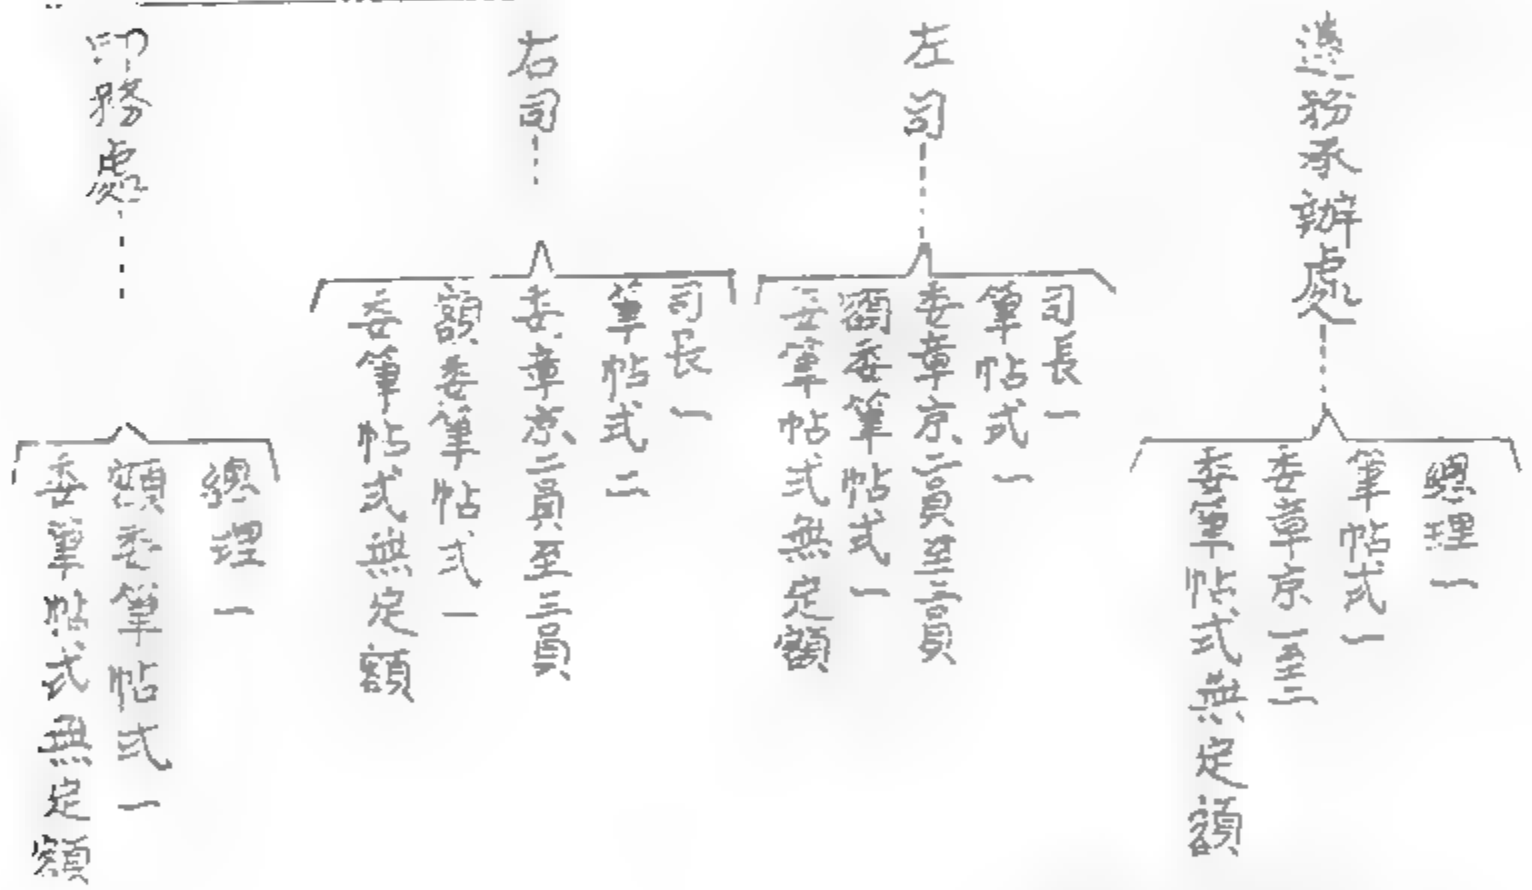 邊務承辦處
總理一
筆帖式一
委章京一至二
委筆帖式無定額
左司
司長一
筆帖式一
委章京二員至三員
額委筆帖式一
委筆帖式無定額
右司
司長一
筆帖式二
委章京二員至三員
額委筆帖式一
委筆帖式無定額
印務處
總理一
額委筆帖式一
委筆帖式無定額